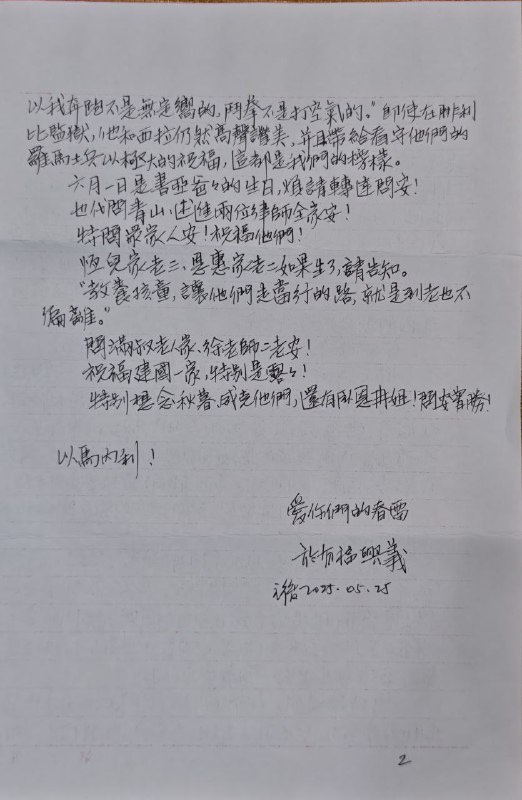 以我奔跑不是無定嚮的，鬥拳不是打空氣的。”即使在腓利
比監獄，他和西拉仍然高聲讚美，并且帶給看守他們的
羅馬士兵以極大的祝福，這都是我們的榜樣。
六月一日是書亞爺々的生日，煩請轉達問安！
也代問青山、述進兩位律師全家安！
特問眾家人安！祝福他們！
恆兒家老三、恩惠家老二如果生了，請告知。
“教養孩童，讓他們走當行的路，就是到老也不
偏離。”
問滿叔老人家、徐老師二老安！
祝福建國一家，特別是露々！
特別想念秋暮、威克他們，還有以恩冉姐！問安
以馬內利！
愛你們的春雷
於有福興義
主曆2025.05.25
2